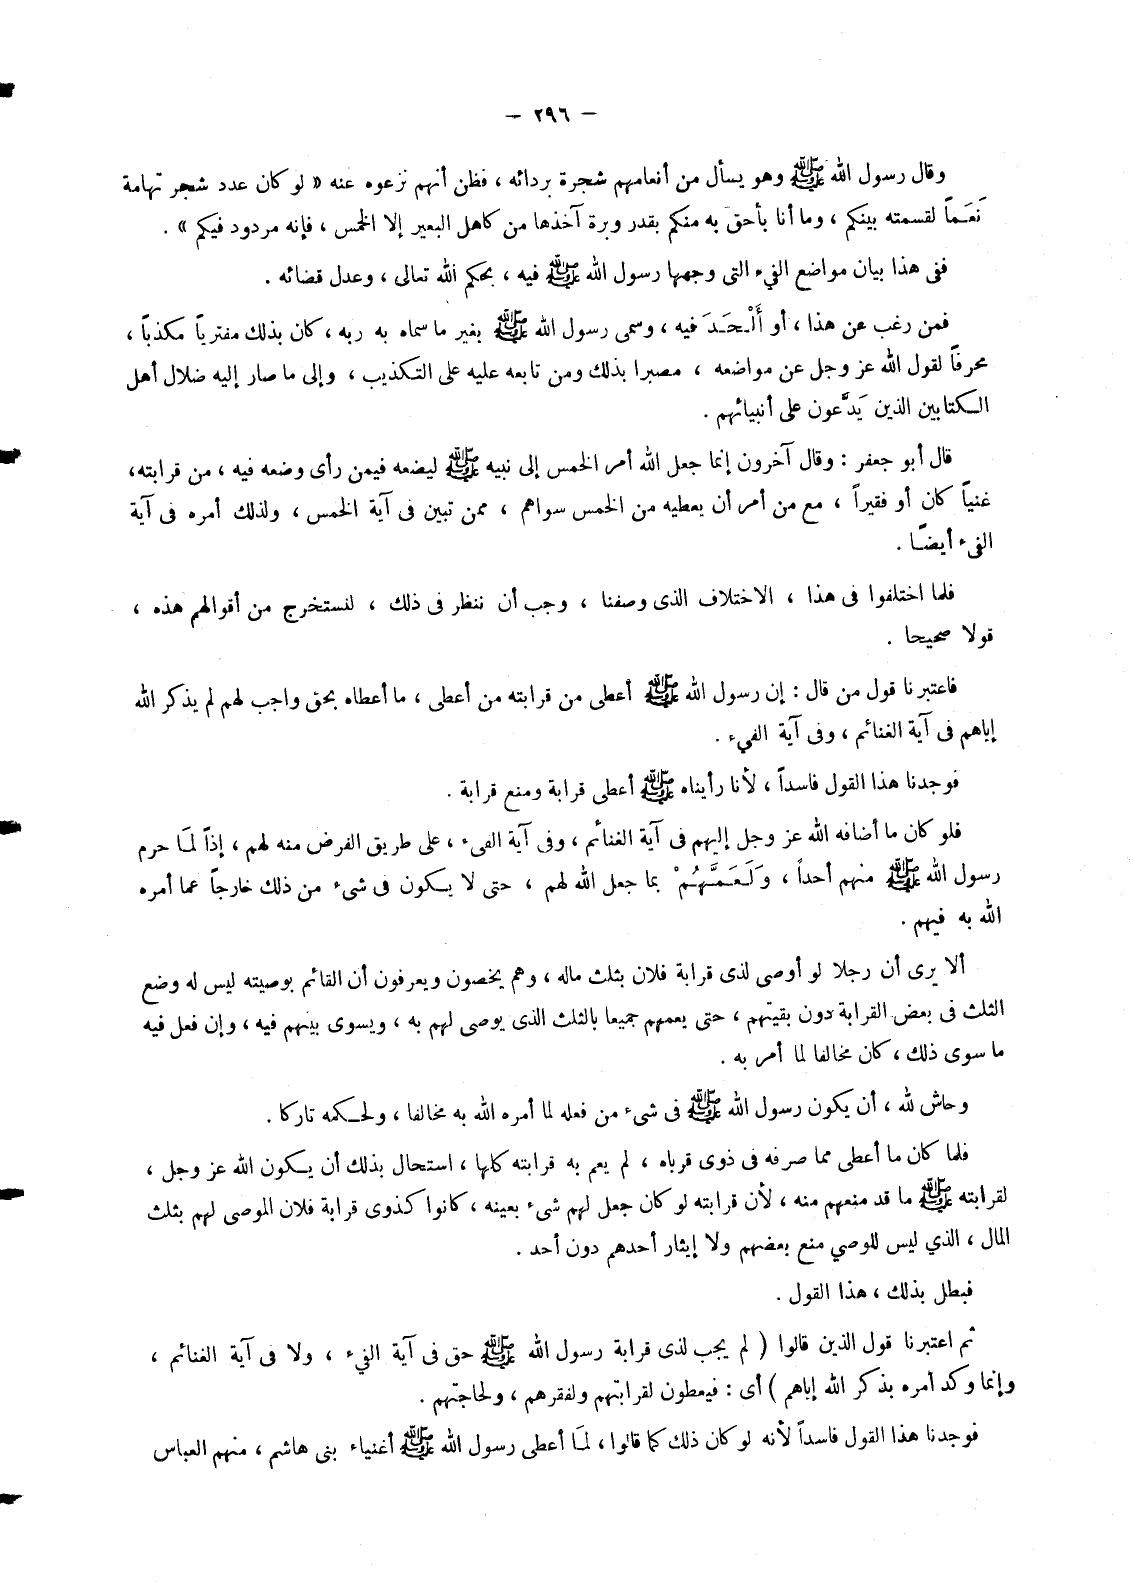 — ٢٩٦ —
وقال رسول الله ﷺ وهو يسأل من أنعامهم شجرة بردائه ، فظن أنهم نزعوه عنه « لو كان عدد شجر تهامة
نَعَماً لقسمته بينكم ، وما أنا بأحق به منكم بقدر وبرة آخذها من كاهل البعير إلا الخمس ، فإنه مردود فيكم » .
ففى هذا بيان مواضع الفيء التى وجهها رسول الله ﷺ فيه ، بحكم الله تعالى ، وعدل قضائه .
فمن رغب عن هذا ، أو أَلْحَدَ فيه ، وسمى رسول الله ﷺ بغير ما سماه به ربه ، كان بذلك مفترياً مكذباً ،
محرفاً لقول الله عز وجل عن مواضعه ، مصبرا بذلك ومن تابعه عليه على التكذيب ، وإلى ما صار إليه ضلال أهل
الكتابين الذين يَدَّعون على أنبيائهم .
قال أبو جعفر : وقال آخرون إنما جعل الله أمر الخمس إلى نبيه ﷺ ليضعه فيمن رأى وضعه فيه ، من قرابته،
غنياً كان أو فقيراً ، مع من أمر أن يعطيه من الخمس سواهم ، ممن تبين فى آية الخمس ، ولذلك أمره فى آية
الفىء أيضًا .
فلما اختلفوا فى هذا ، الاختلاف الذى وصفنا ، وجب أن ننظر فى ذلك ، لنستخرج من أقوالهم هذه ،
قولا صحيحا .
فاعتبرنا قول من قال : إن رسول الله ﷺ أعطى من قرابته من أعطى ، ما أعطاه بحق واجب لهم لم يذكر الله
إياهم فى آية الغنائم ، وفى آية الفيء .
فوجدنا هذا القول فاسداً ، لأنا رأيناه ﷺ أعطى قرابة ومنع قرابة .
فلو كان ما أضافه الله عز وجل إليهم فى آية الغنائم ، وفى آية الفىء ، على طريق الفرض منه لهم ، إذاً لمَا حرم
رسول الله ﷺ منهم أحداً ، وَلَعَمَّهُمْ بما جعل الله لهم ، حتى لا يكون فى شىء من ذلك خارجاً عما أمره
الله به فيهم .
ألا يرى أن رجلا لو أوصى لذى قرابة فلان بثلث ماله ، وهم يخصون ويعرفون أن القائم بوصيته ليس له وضع
الثلث فى بعض القرابة دون بقيتهم ، حتى يعمهم جميعا بالثلث الذى يوصى لهم به ، ويسوى بينهم فيه ، وإن فعل فيه
ما سوى ذلك ، كان مخالفا لما أمر به .
وحاش لله ، أن يكون رسول الله ﷺ فى شىء من فعله لما أمره الله به مخالفا ، ولحكمه تاركا .
فلما كان ما أعطى مما صرفه فى ذوى قرباه ، لم يعم به قرابته كلها ، استحال بذلك أن يكون الله عز وجل ،
لقرابته ﷺ ما قد منعهم منه ، لأن قرابته لو كان جعل لهم شىء بعينه ، كانوا كذوى قرابة فلان الموصى لهم بثلث
المال ، الذي ليس للوصي منع بعضهم ولا إيثار أحدهم دون أحد .
فبطل بذلك ، هذا القول .
ثم اعتبرنا قول الذين قالوا ( لم يجب لذى قرابة رسول الله ﷺ حق فى آية الفيء ، ولا فى آية الغنائم ،
وإنما وكد أمره بذكر الله إياهم ) أى : فيعطون لقرابتهم ولفقرهم ، ولحاجتهم .
فوجدنا هذا القول فاسداً لأنه لو كان ذلك كما قالوا ، لمَا أعطى رسول الله ﷺ أغنياء بنى هاشم ، منهم العباس